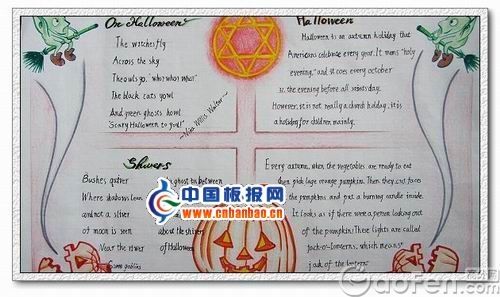 On Halloween
The witches fly
Across the sky
The owls go, "who? who? who?"
The black cats yowl
And green ghosts howl
Scary Halloween to you!"
~Nina Willis Walter~
Halloween
Halloween is an autumn holiday that
Americans celebrate every year. It means "holy
evening," and it comes every october
31. the evening before all saints day.
However, it is not really a church holiday, it is
a holiday for children mainly.
Shivers
Bushes quiver
Where shadows lean
and not a sliver
of moon is seen
Near the river
Some goblins
ghost between
about the shivers
of Halloween
Every autumn, when the vegetables are ready to eat
then pick large orange pumpkins. Then they cut faces
the pumpkins and put a burning candle inside
It looks as if there were a person looking out
of the pumpkin. These lights are called
jack-o'-lanterns, which means"
jack of the lantern
中国板报网
www.cnbanbao.cn
GaoFen.com